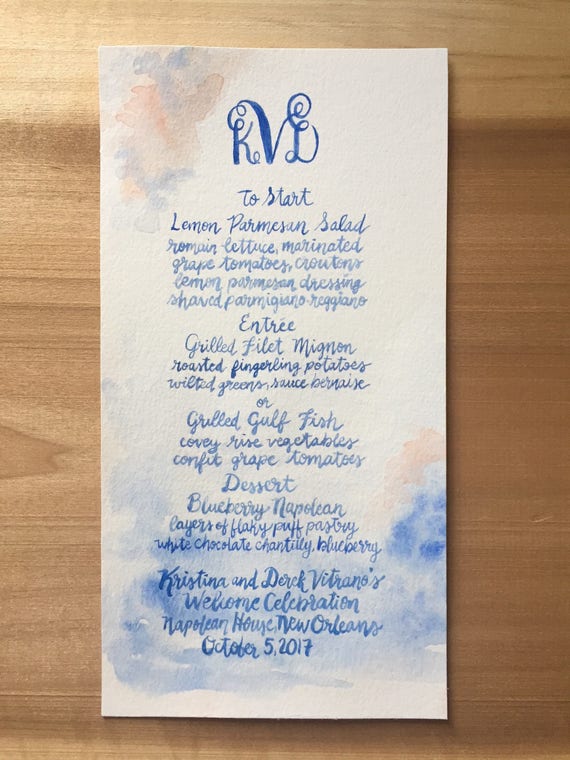 KVD
To Start
Lemon Parmesan Salad
romain lettuce, marinated
grape tomatoes, croutons
lemon parmesan dressing
shaved parmigiano-reggiano
Entrée
Grilled Filet Mignon
roasted fingerling potatoes
wilted greens, sauce bernaise
or
Grilled Gulf Fish
covey rise vegetables
confit grape tomatoes
Dessert
Blueberry Napolean
layers of flaky puff pastry
white chocolate chantilly, blueberry
Kristina and Derek Vitrano's
Welcome Celebration
Napolean House, New Orleans
October 5, 2017